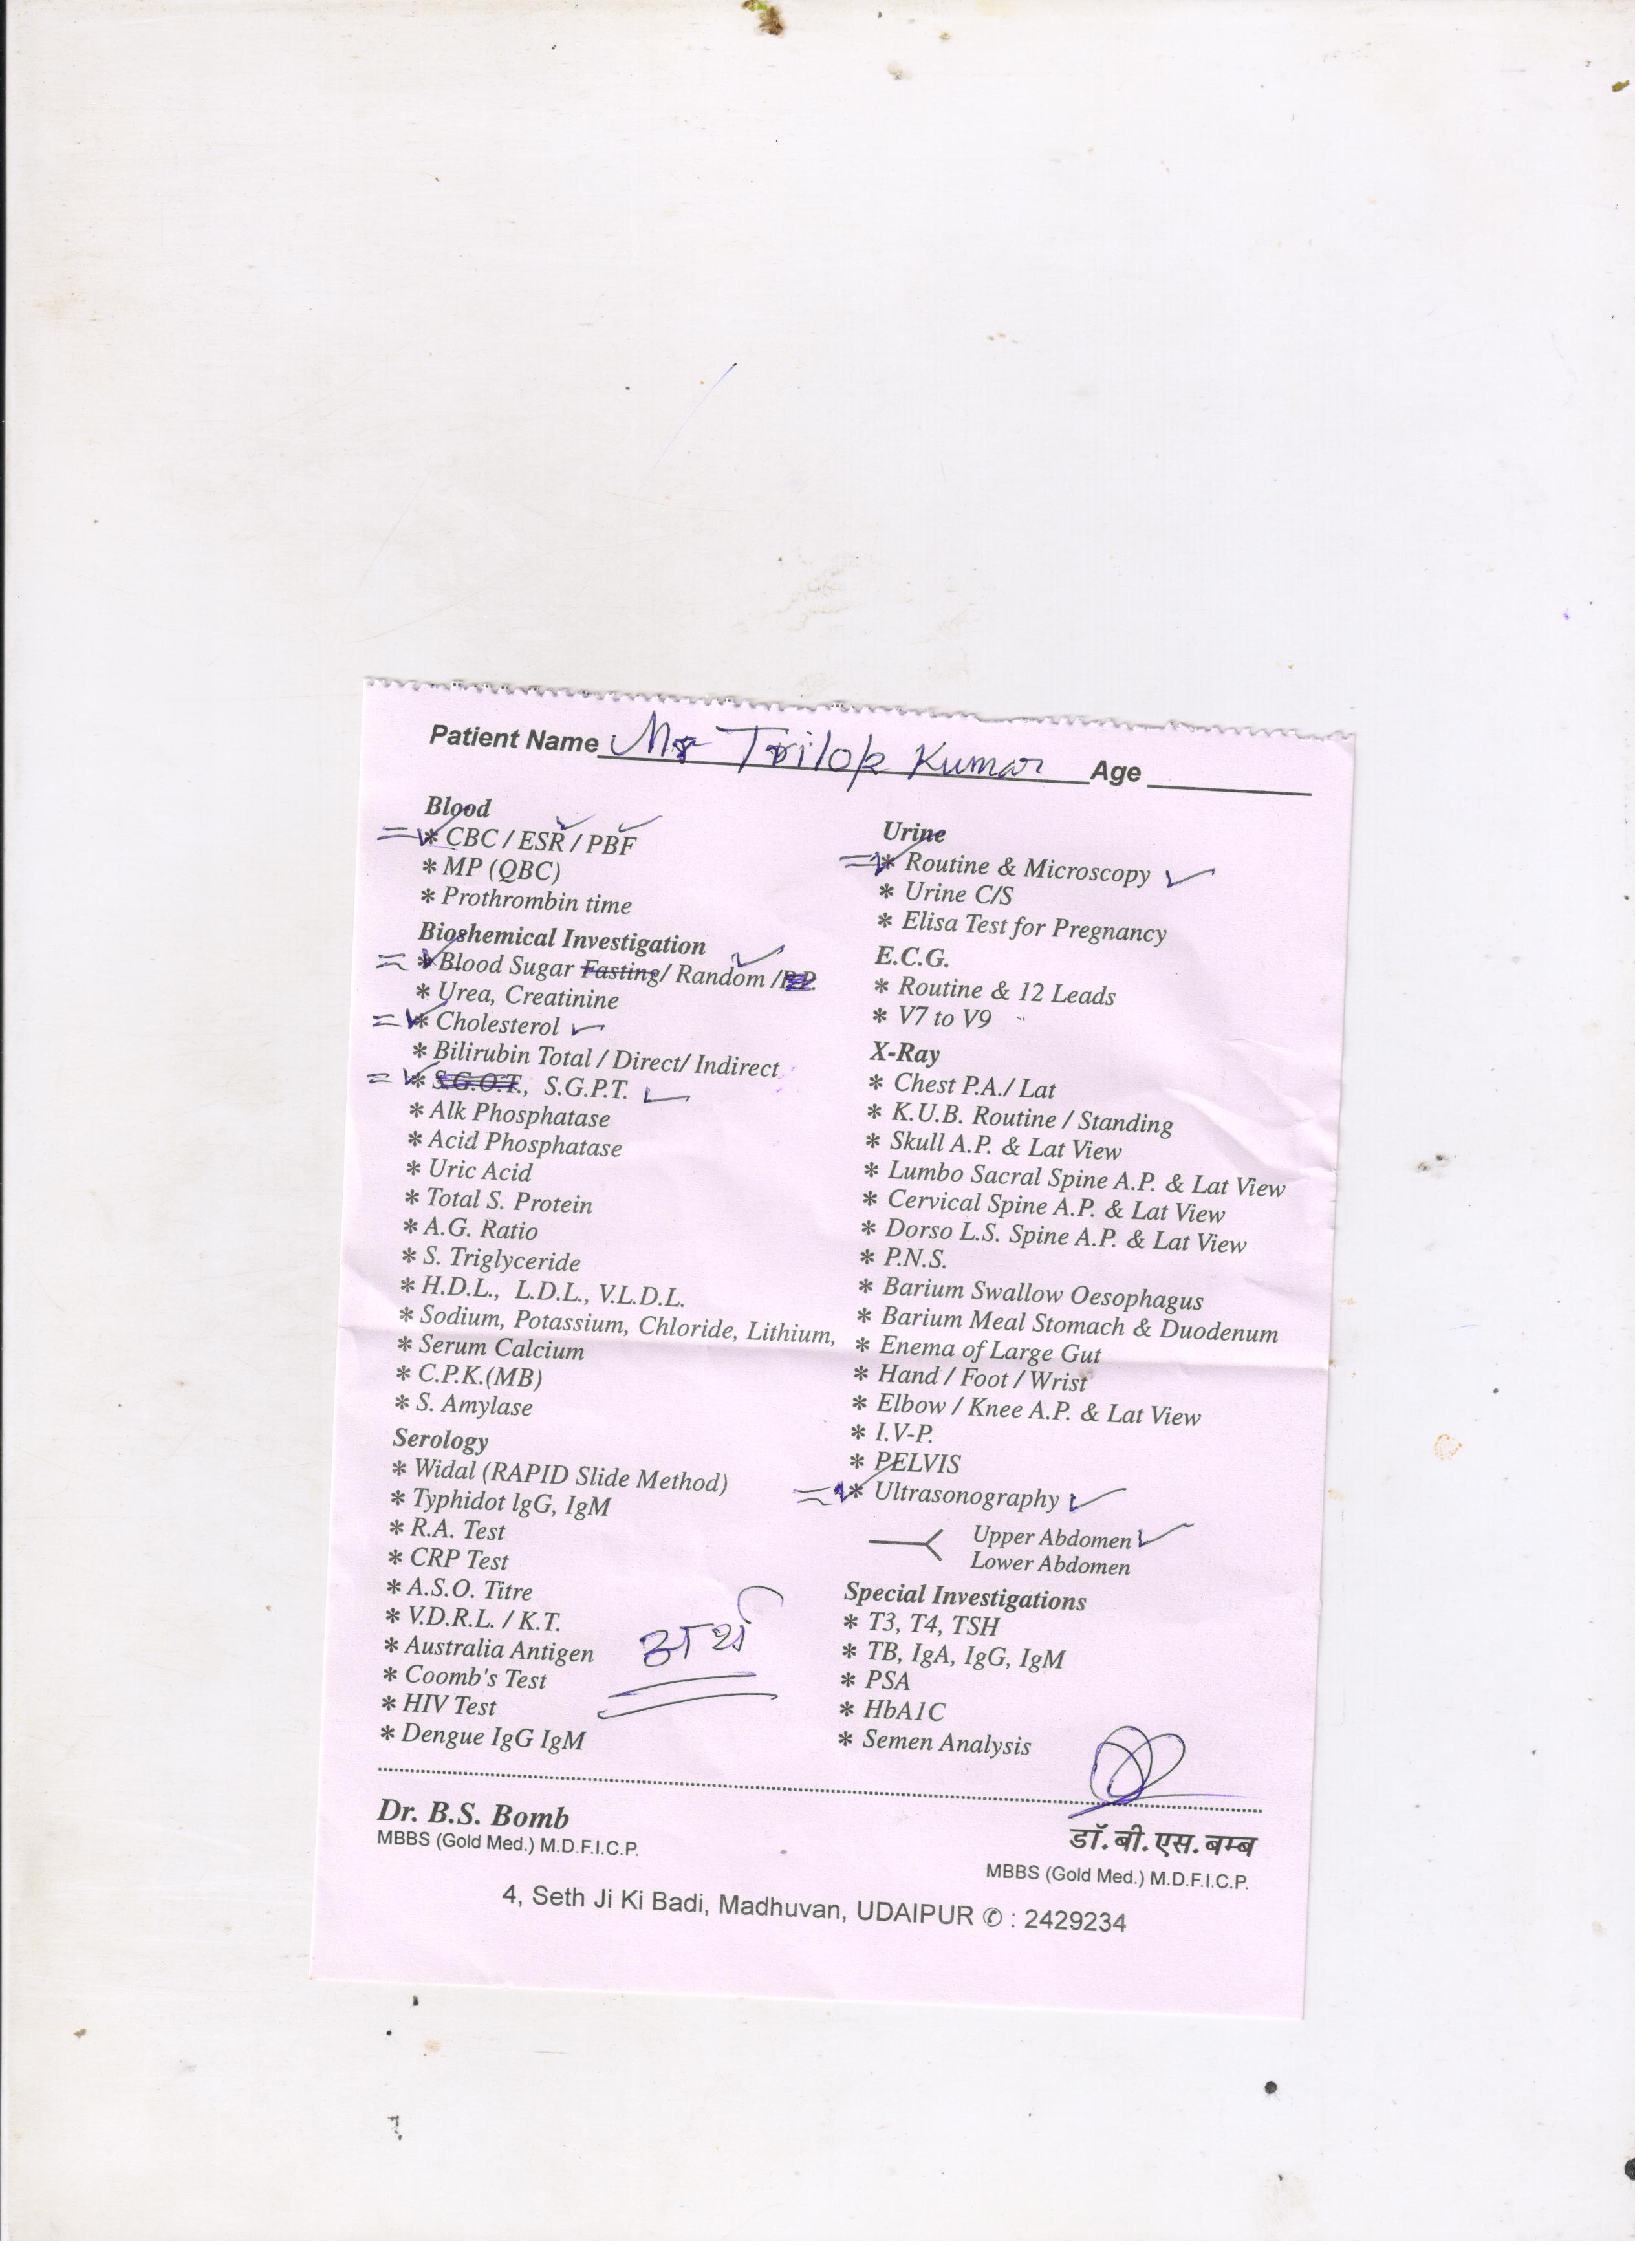 Patient Name Mr Trilok Kumar Age
Blood
* CBC / ESR / PBF
* MP (QBC)
* Prothrombin time
Bioshemical Investigation
* Blood Sugar Fasting/ Random /P.P.
* Urea, Creatinine
* Cholesterol
* Bilirubin Total / Direct/ Indirect
* S.G.O.T., S.G.P.T.
* Alk Phosphatase
* Acid Phosphatase
* Uric Acid
* Total S. Protein
* A.G. Ratio
* S. Triglyceride
* H.D.L., L.D.L., V.L.D.L.
* Sodium, Potassium, Chloride, Lithium,
* Serum Calcium
* C.P.K.(MB)
* S. Amylase
Serology
* Widal (RAPID Slide Method)
* Typhidot lgG, IgM
* R.A. Test
* CRP Test
* A.S.O. Titre
* V.D.R.L. / K.T.
* Australia Antigen
* Coomb's Test
* HIV Test
* Dengue IgG IgM
अर्थ
Urine
* Routine & Microscopy
* Urine C/S
* Elisa Test for Pregnancy
E.C.G.
* Routine & 12 Leads
* V7 to V9
X-Ray
* Chest P.A./ Lat
* K.U.B. Routine / Standing
* Skull A.P. & Lat View
* Lumbo Sacral Spine A.P. & Lat View
* Cervical Spine A.P. & Lat View
* Dorso L.S. Spine A.P. & Lat View
* P.N.S.
* Barium Swallow Oesophagus
* Barium Meal Stomach & Duodenum
* Enema of Large Gut
* Hand / Foot / Wrist
* Elbow / Knee A.P. & Lat View
* I.V-P.
* PELVIS
* Ultrasonography
Upper Abdomen
Lower Abdomen
Special Investigations
* T3, T4, TSH
* TB, IgA, IgG, IgM
* PSA
* HbA1C
* Semen Analysis
Dr. B.S. Bomb
MBBS (Gold Med.) M.D.F.I.C.P.
डॉ. बी. एस. बम्ब
MBBS (Gold Med.) M.D.F.I.C.P.
4, Seth Ji Ki Badi, Madhuvan, UDAIPUR ✆ : 2429234